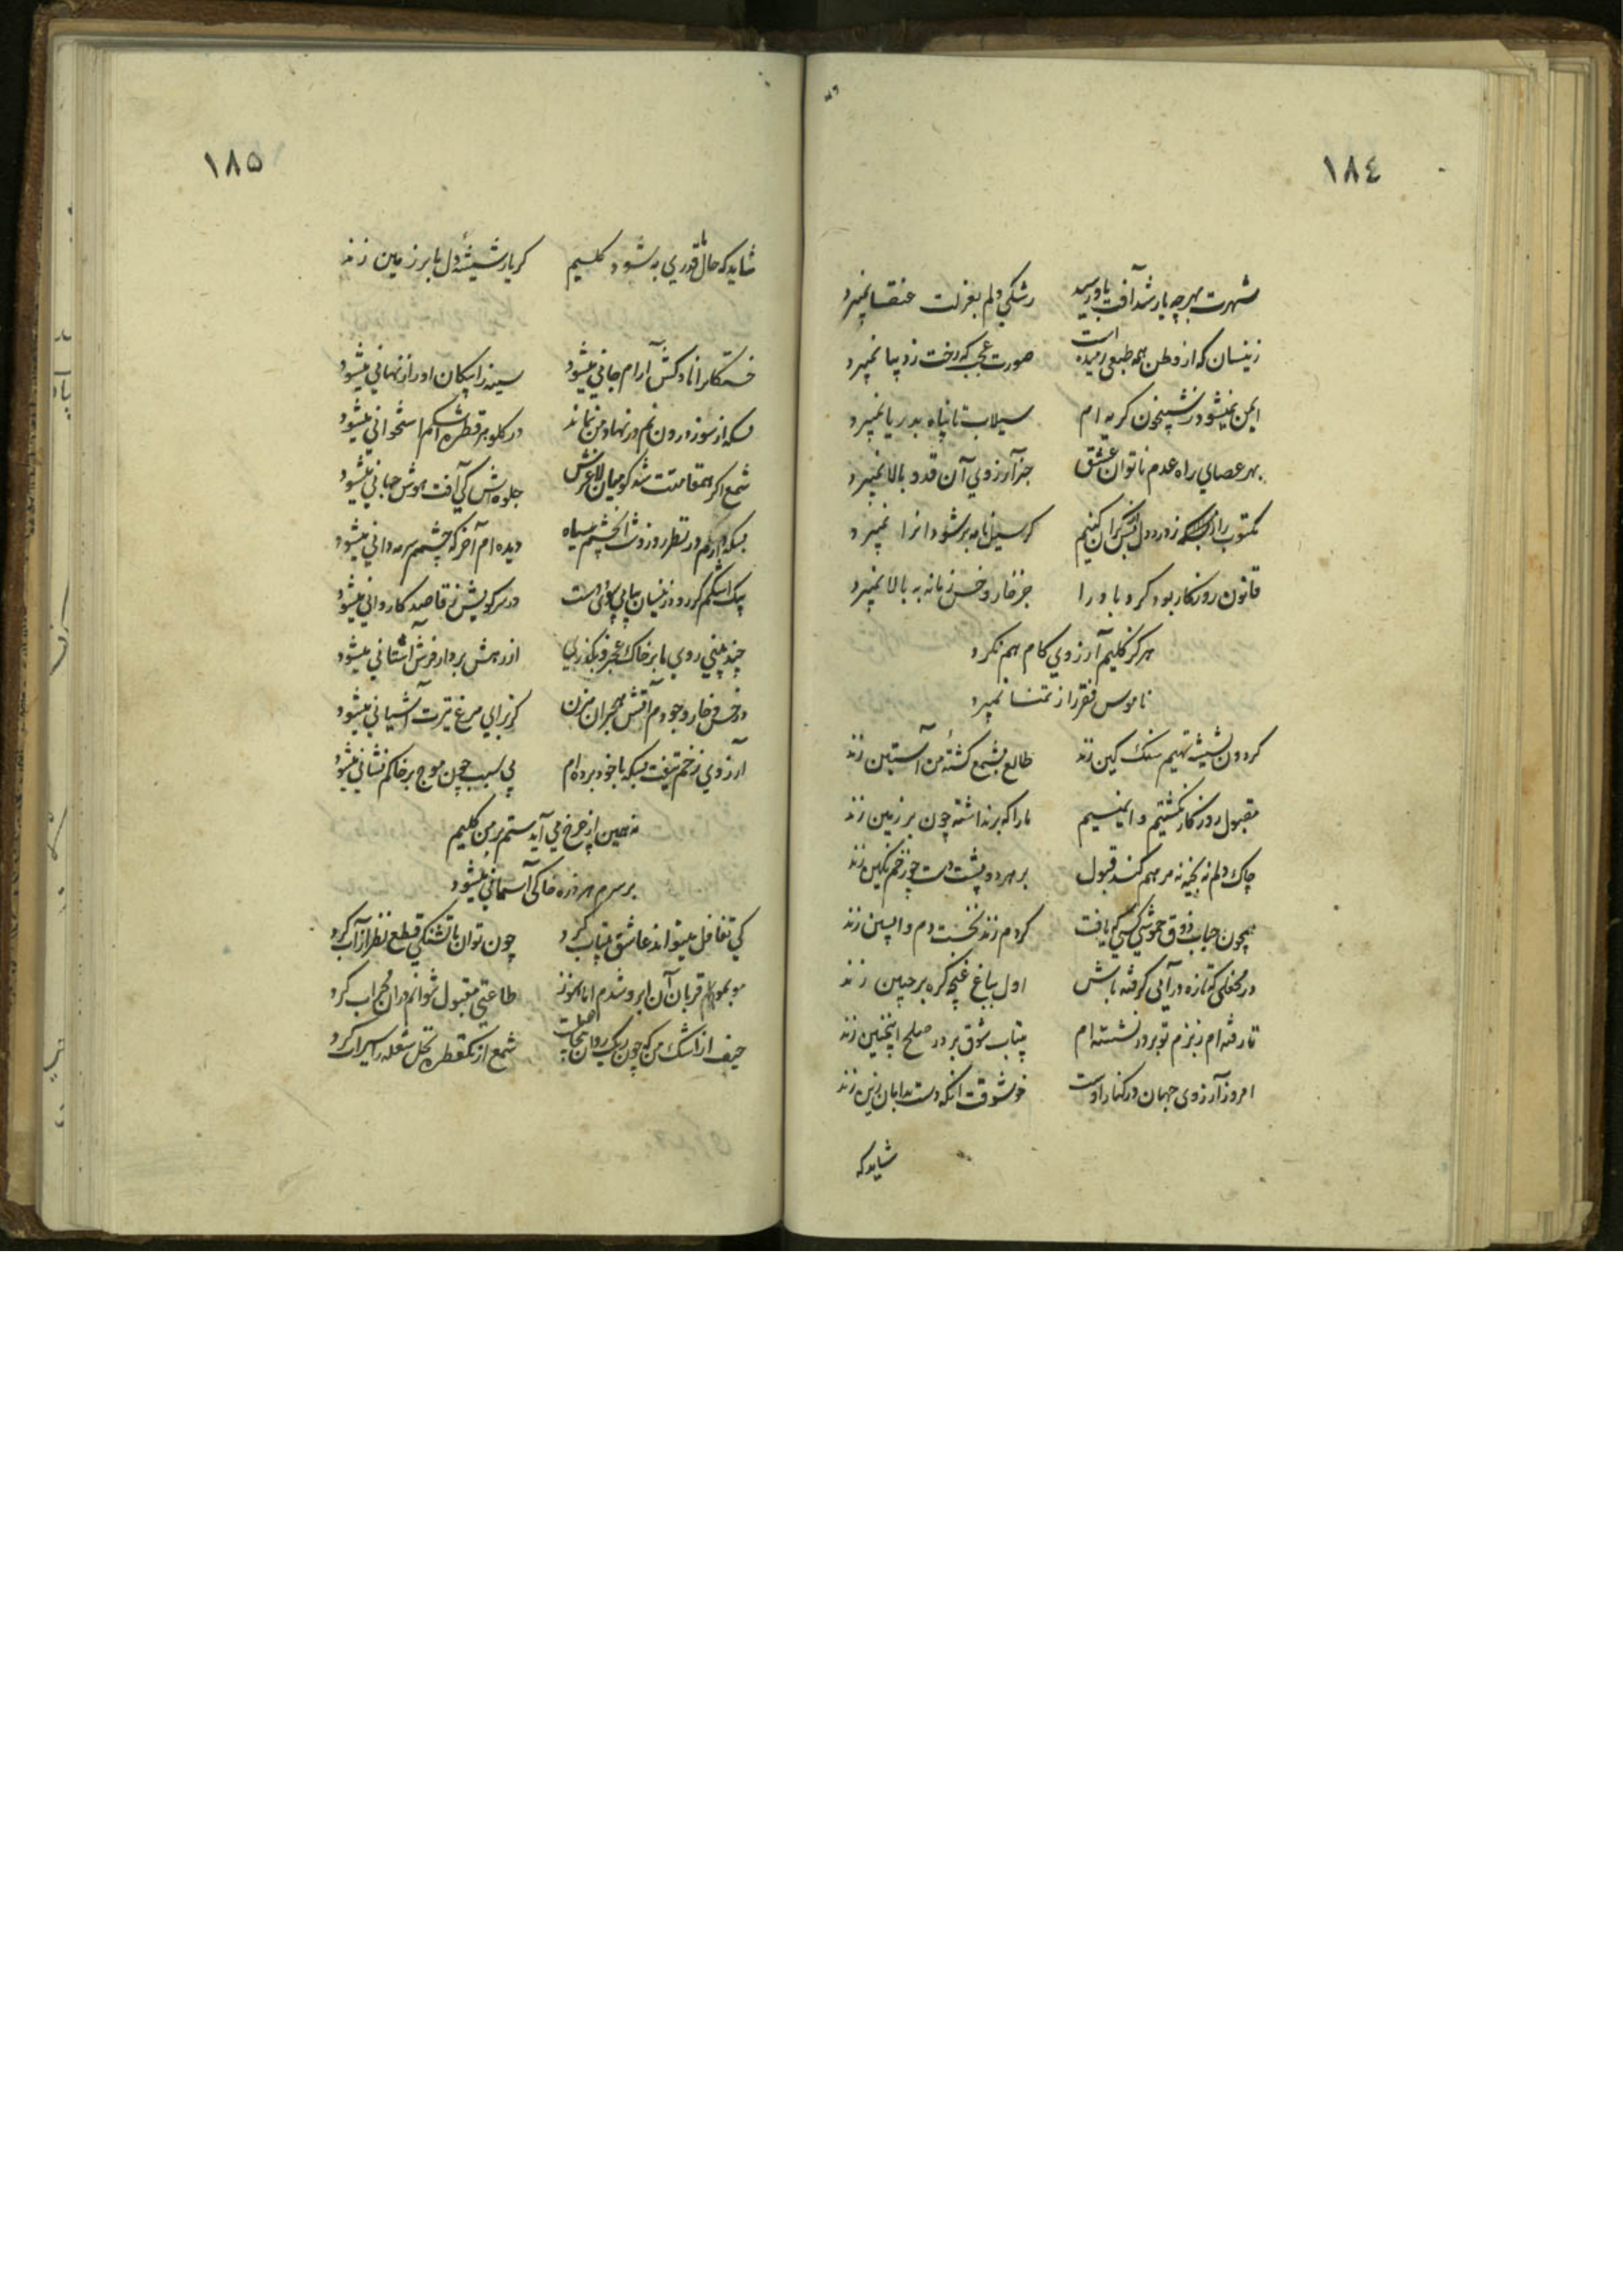 ١٨٤
شهرت بهر چه یار شد آفت باو رسید رشکی دلم بعزلت عنقا نمیبرد
زینسان که از وطن همه طبعی رمیده است صورت عجب که رخت ز دیبا نمیبرد
ایمن نمیشود ز شبیخون کریه ام سیلاب تا پناه بدریا نمیبرد
بهر عصای راه عدم ناتوان عشق جز آرزوی آن قد و بالا نمیبرد
مکتوب را ز درد دل کران کنیم کر سیل نامه بر شود انرا نمیبرد
قانون روزکار بود کرد باد را جز خار و خس زمانه به بالا نمیبرد
هرکز کلیم آرزوی کام هم نکرد
ناموس فقر را ز تمنا نمیبرد
کردون بشیشه تهیم سنک کین زند طالع بشمع کشتهٔ من آستین زند
مقبول روزکار نکشتیم و ایمنیم ما را که برنداشته چون بر زمین زند
چاک دلم نه بخیه نه مرهم کند قبول بر هر دو پشت دست چو زخم نکین زند
همچون حباب ذوق خموشی کسی که یافت کر دم زند نخست دم واپسین زند
در محفلی که تازه درآیی کرفته باش اول بباغ غنچه کره بر جبین زند
تا رفته ام ز بزم تو بر در نشسته ام بیتاب شوق بر در صلح اینچنین زند
امروز آرزوی جهان در کنار اوست خوشوقت آنکه دست بدامان زین زند
شاید که
١٨٥
شاید که حال ما قدری به شود کلیم کر یار شیشهٔ دل ما بر زمین زند
خستکانرا ناوکش آرام جانی میشود سینه را پیکان او راز نهانی میشود
بسکه از سوز درون نم در نهاد من نماند در کلو هر قطره اشکم استخوانی میشود
شمع اکر همقامتت شد کو میان لاغرش جلوه اش کی آفت هوش جهانی میشود
بسکه دارم در نظر روز و شب آن چشم سیاه دیده ام آخر که چشم سرمه دانی میشود
پیک اشکم کر رود زینسان پیاپی سوی دوست در سر کویش ز قاصد کاروانی میشود
چند بینی روی ما بر خاک عجز و بکذری از رهش بردار فرش آستانی میشود
در خس و خار وجودم آتش هجران مزن کز برای مرغ تیرت آشیانی میشود
آرزوی زخم تیغت بسکه با خود برده ام بی سبب چون موج بر خاکم نشانی میشود
نه همین از چرخ می آید ستم بر من کلیم
بر سرم هر ذره خاکی آسمانی میشود
کی تغافل میتواند عاشق بیتاب کرد چون توان با تشنکی قطع نظر از آب کرد
مو بمو قربان آن ابرو شدم اما هنوز طاعتی مقبول نتوانم در آن محراب کرد
حیف از اشک من که چون ریک روان شمع از یکقطره نخل شعله را سیراب کرد